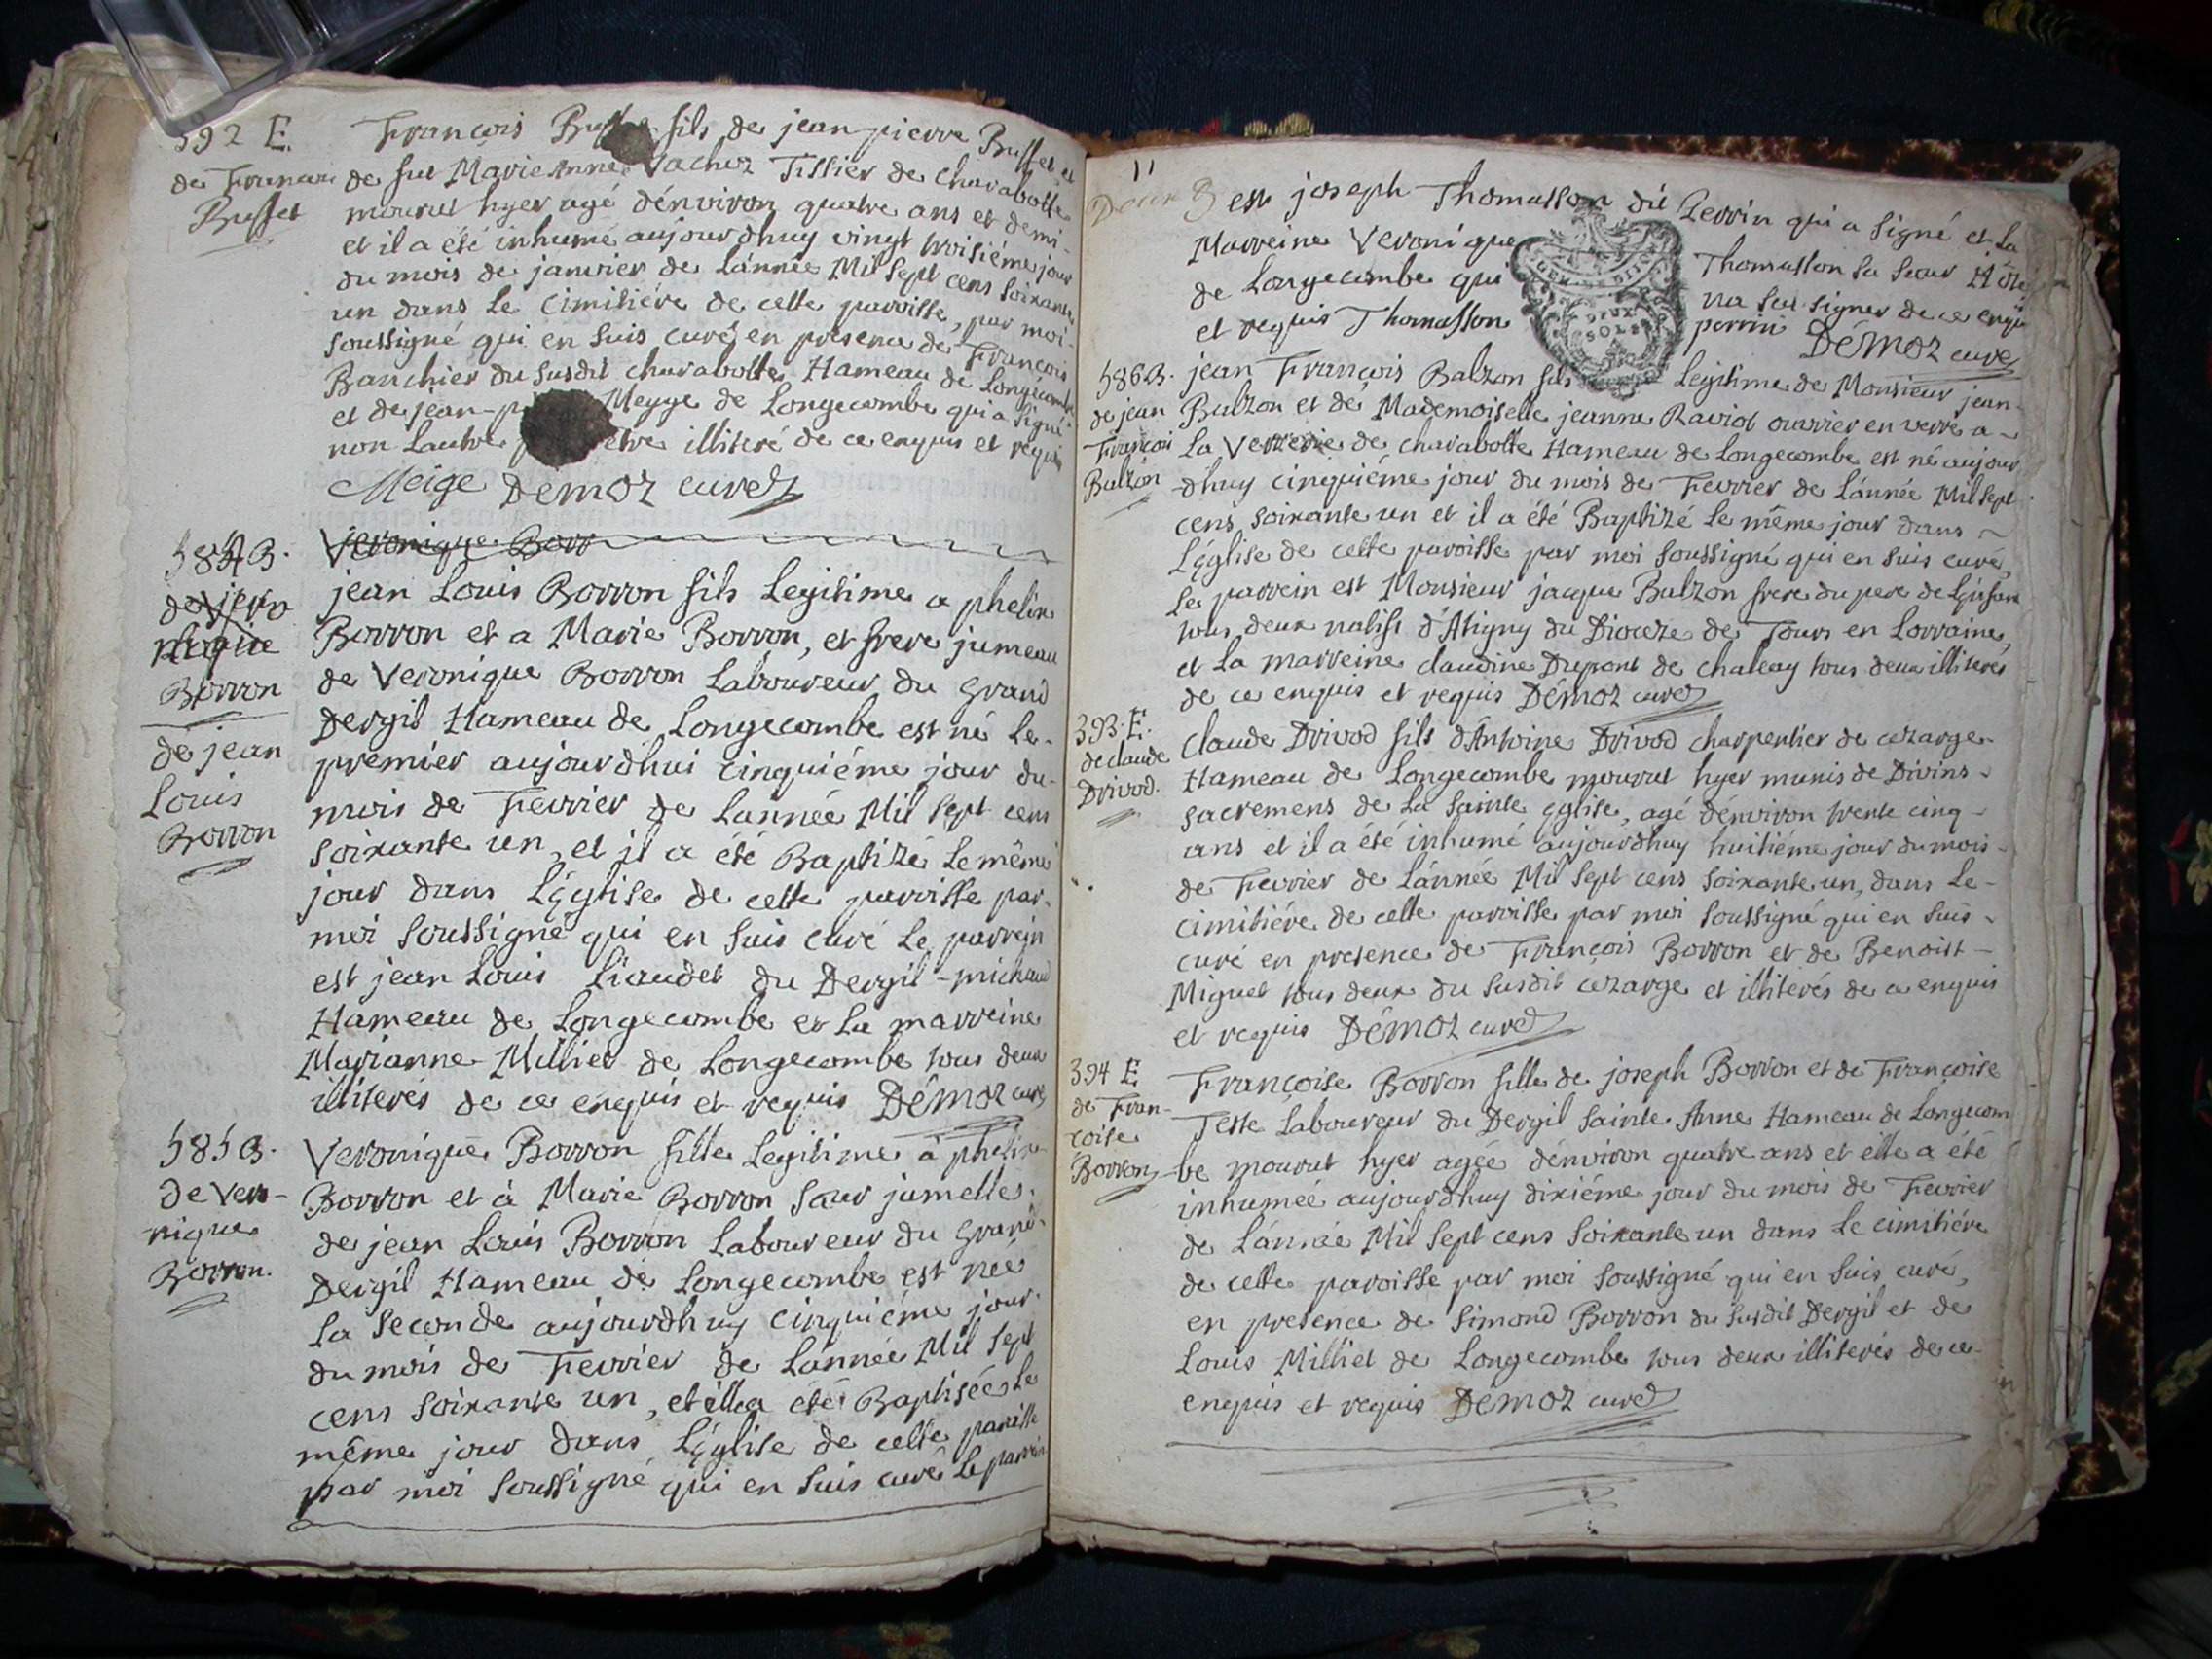 392 E.
de François
Buffet
François fils de jean pierre Buffet et
de fut Marie Anne Vachez Tissier de charabotte
mourut hyer agé dénviron quatre ans et demi-
et il a été inhumé aujourdhuy vingt troisiéme jour
du mois de janvier de lánnée Mil sept cens soixante
un dans le cimitiére de cette paroisse, par moi-
soussigné qui en suis curé, en présence de François
Banchier du susdit charabotte Hameau de Longecombe
et de jean- Meyge de Longecombe qui a signé
non lautre être illiteré de ce enquis et requis
Meige Démoz curé
584 B.
de Vero
nique
Borron
de jean
Louis
Borron
Veronique Borr
jean Louis Borron fils Legitime a phelix
Borron et a Marie Borron, et frere jumeau
de Veronique Borron Laboureur du grand
Dergil Hameau de Longecombe est né le-
premier aujourdhui cinquiéme jour du-
mois de Fevrier de Lannée Mil sept cens
soixante un, et il a été Baptizé le même
jour dans L'église de cette paroisse par-
moi soussigné qui en suis curé le parrein
est jean Louis Liaudet du Dergil-michaud
Hameau de Longecombe et la marreine
Marianne-Milliet de Longecombe tous deux
illiterés de ce enquis et requis Démoz curé
585 B.
de Vero-
nique
Borron.
Veronique Borron fille legitime à phelix
Borron et à Marie Borron sœur jumelle
de jean Louis Borron Laboureur du grand-
Dergil Hameau de Longecombe est née
la seconde aujourdhuy cinquiéme jour
du mois de Fevrier de lánnée Mil sept
cens soixante un, et ella été Baptisée le
même jour dans L'église de cette paroisse
par moi soussigné qui en suis curé le parrein
11
Deux
est joseph Thomasson dit Perrin qui a signé et la
Marreine Veronique Thomasson sa sœur
de Longecombe qui na sut signer de ce enquis
et requis Thomasson perrin Démoz curé
DEUX
SOLS
586 B.
de jean
François
Balzon
jean François Balzon fils Legitime de Monsieur jean-
Balzon et de Mademoiselle jeanne Raviot ouvrier en verre a
La Verrerie de charabotte Hameau de Longecombe est né aujour
dhuy cinquiéme jour du mois de Fevrier de Lánnée Mil sept
cens soixante un et il a été Baptizé le même jour dans
L'église de cette paroisse par moi soussigné qui en suis curé,
le parrein est Monsieur jacque Balzon frere du pere de
tous deux natifs d'Atigny du Dioceze de Tours en Lorraine,
et la marreine claudine Dupont de chaley tous deux illiterés
de ce enquis et requis Démoz curé
393. E.
de claude
Drivod.
claude Drivod fils dAntoine Drivod charpentier de cezarge
Hameau de Longecombe mourut hyer munis de Divins
sacremens de la sainte église, agé dénviron trente cinq
ans et il a été inhumé aujourdhuy huitiéme jour du mois
de Fevrier de lánnée Mil sept cens soixante un, dans le-
cimitiére de cette paroisse par moi soussigné qui en suis
curé en presence de François Borron et de Benoist
Miguet tous deux du susdit cezarge et illiterés de ce enquis
et requis Démoz curé
394 E
de Fran-
çoise
Borron
Françoise Borron fille de joseph Borron et de Françoise
Teste Laboureur du Dergil sainte Anne Hameau de Longecom
be mourut hyer agée dénviron quatre ans et elle a été
inhumée aujourdhuy dixiéme jour du mois de Fevrier
de Lánnée Mil sept cens soixante un dans le cimitiére
de cette paroisse par moi soussigné qui en suis curé,
en presence de Simond Borron du susdit Dergil et de
Louis Milliet de Longecombe tous deux illiterés de ce
enquis et requis Démoz curé